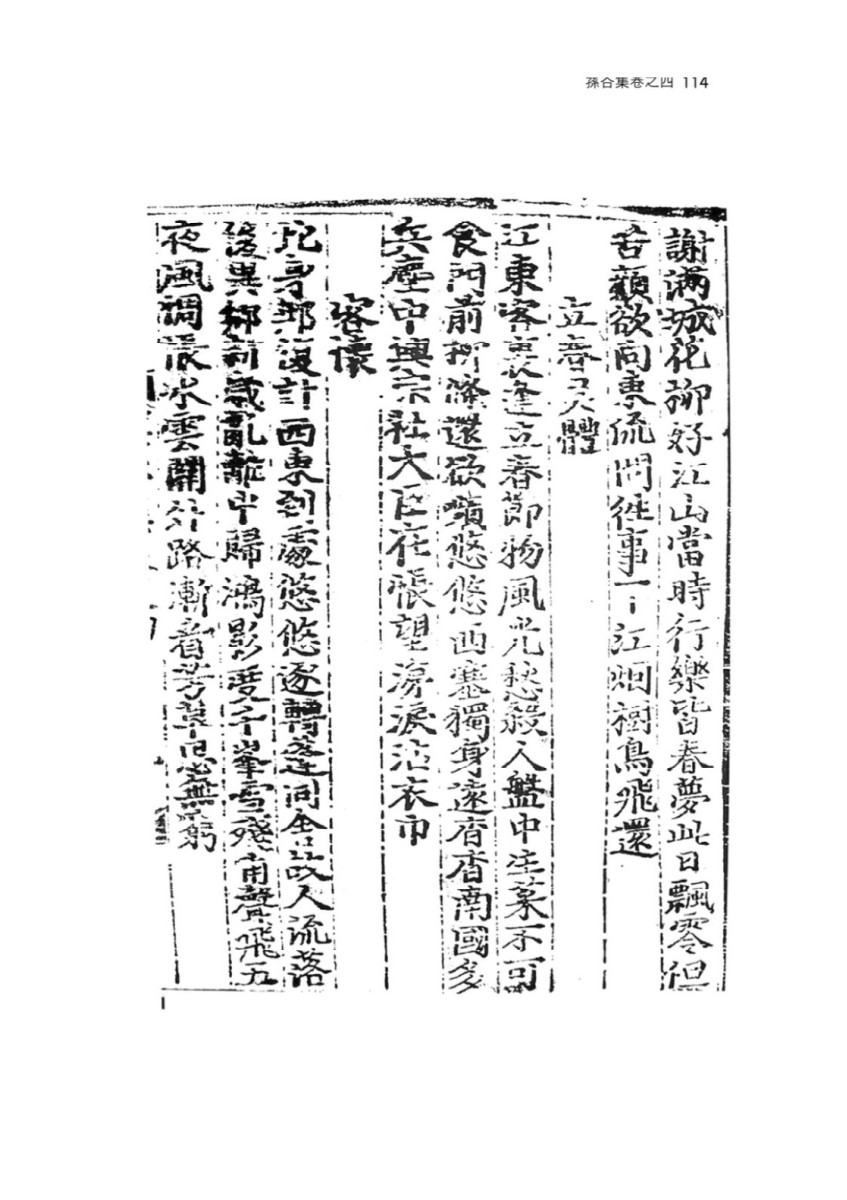 孫谷集卷之四 114
謝滿城花柳好江山當時行樂皆春夢此日飄零但
苦顏欲向東流問往事一江烟樹鳥飛還
立春吳體
江東客裏逢立春節物風光愁殺人盤中生菜不可
食門前柳條還欲嚬悠悠西塞獨身遠杳杳南國多
兵塵中興宗社大臣在悵望滂淚沾衣巾
客懷
身 復計西東到處悠悠逐轉蓬同舍故人流落
後異鄕新歲亂離中歸鴻影度千峯雪殘角聲飛五
夜風調悵水雲關外路漸看芳草思無窮